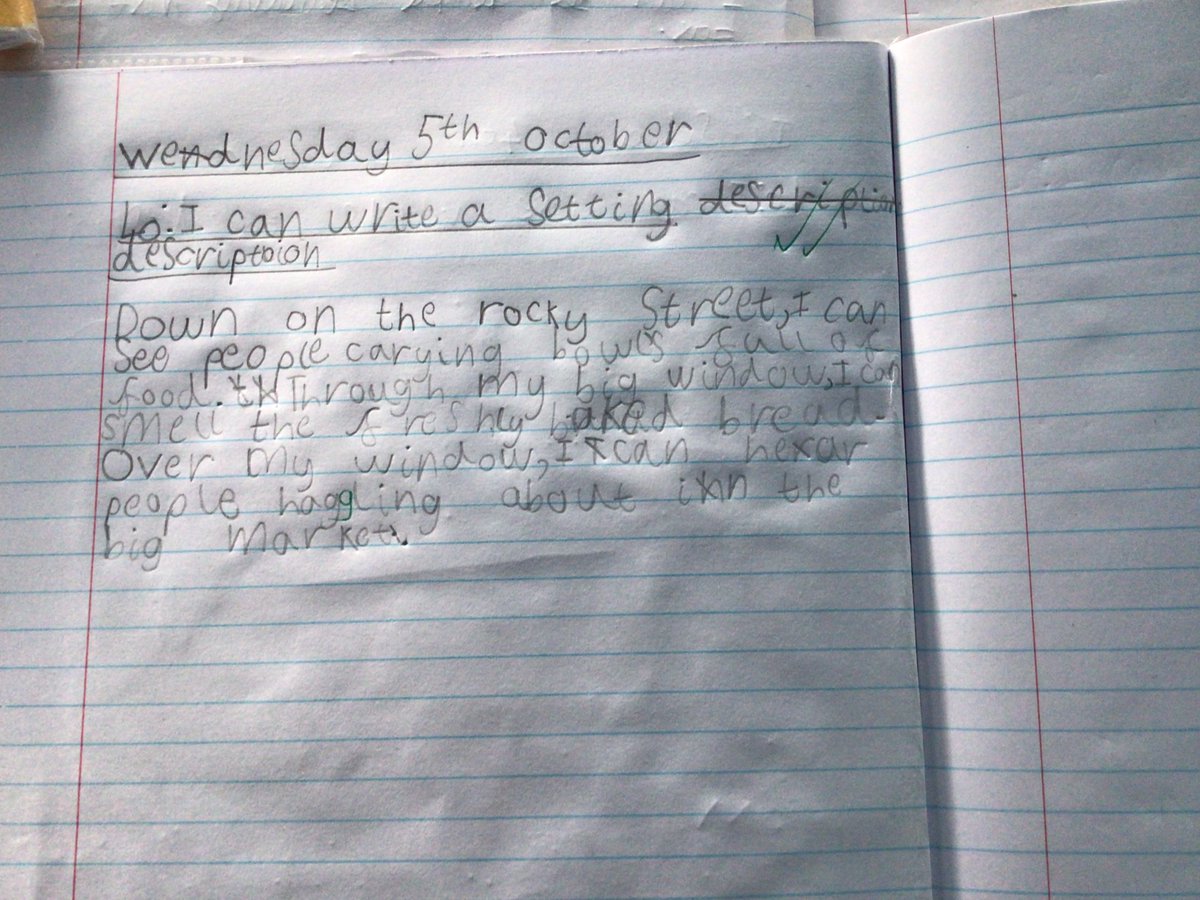 Wendnesday 5th october
Lo: I can write a setting description
description
Down on the rocky Street, I can
See people carying bowls full of
food. Through my big window, I can
smell the freshly baked bread.
Over my window, I can hear
people haggling about in the
big market.